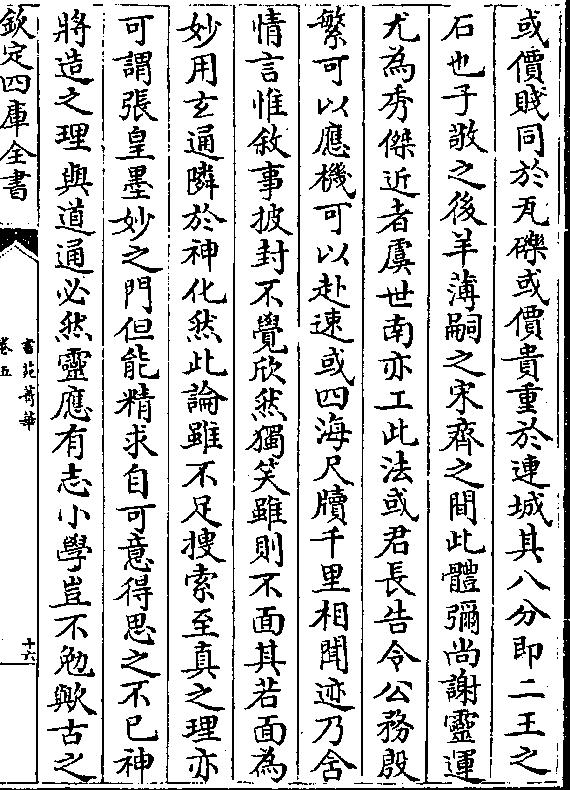 或價賤同於瓦礫或價貴重於連城其八分即二王之
石也子敬之後羊薄嗣之宋齊之間此體彌尚謝靈運
尤為秀傑近者虞世南亦工此法或君長告令公務殷
繁可以應機可以赴速或四海尺牘千里相聞迹乃含
情言惟敘事披封不覺欣然獨笑雖則不面其若面為
妙用玄通隣於神化然此論雖不足搜索至真之理亦
可謂張皇墨妙之門但能精求自可意得思之不已神
將造之理與道通必然靈應有志小學豈不勉歟古之
欽定四庫全書
書苑菁華
卷五
十六